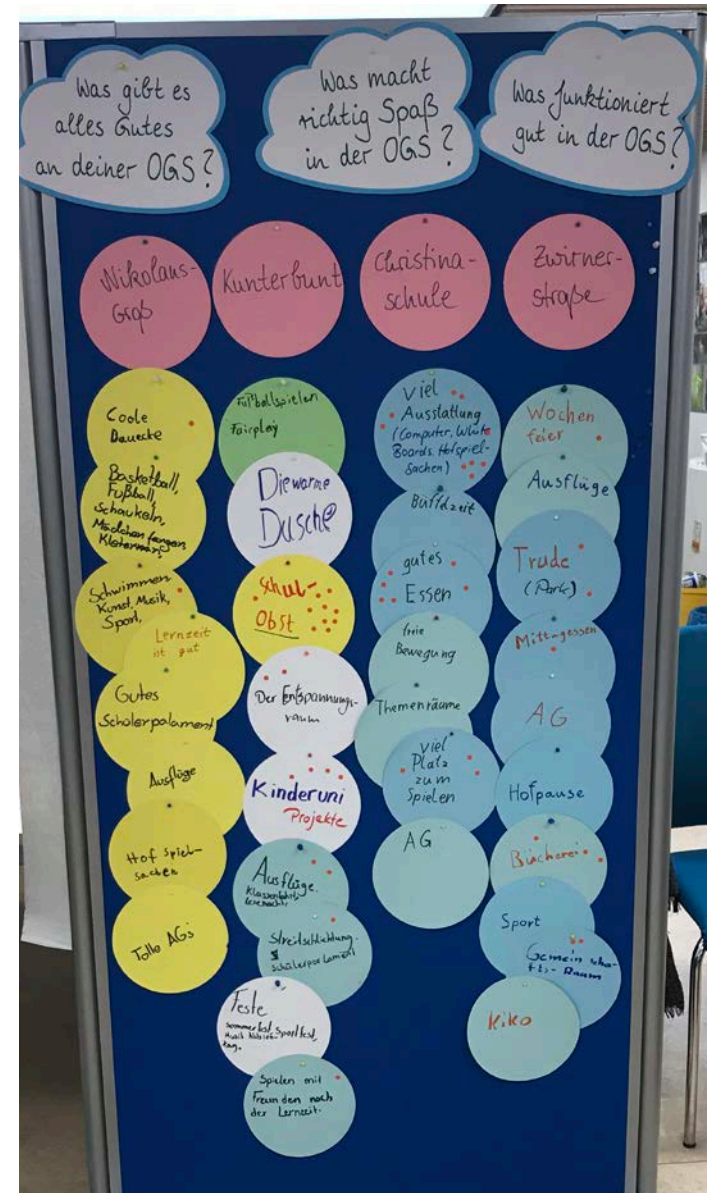 Was gibt es
alles Gutes
an deiner OGS?
Was macht
richtig Spaß
in der OGS?
Was funktioniert
gut in der OGS?
Nikolaus-
Groß
Kunterbunt
Christina-
schule
Zwirner-
straße
Coole
Bauecke
Basketball,
Fußball,
Schaukeln,
Mädchen fangen
Schwimmen
Kunst, Musik,
Sport,
Lernzeit
ist gut
Gutes
Schülerpalament
Ausflüge
Hof spiel-
sachen
Tolle AGs
Fußballspielen
Fairplay
Die warme
Dusche
Schul-
Obst
Der Entspannungs-
raum
Kinderuni
Projekte
Ausflüge.
Streitschlichtung.
Schülerparlament
Feste
Sommerfest, Sportfest,
Spielen mit
Freunden nach
der Lernzeit.
Viel
Ausstattung
(Computer, White
Boards, Hofspiel-
sachen)
gutes
Essen
freie
Bewegung
Themenräume
Viel
Platz
zum
Spielen
AG
Wochen
feier
Ausflüge
Trude
(Park)
Mittagessen
AG
Hofpause
Bücherei
Sport
Gemeinscha-
fts-Raum
Kiko